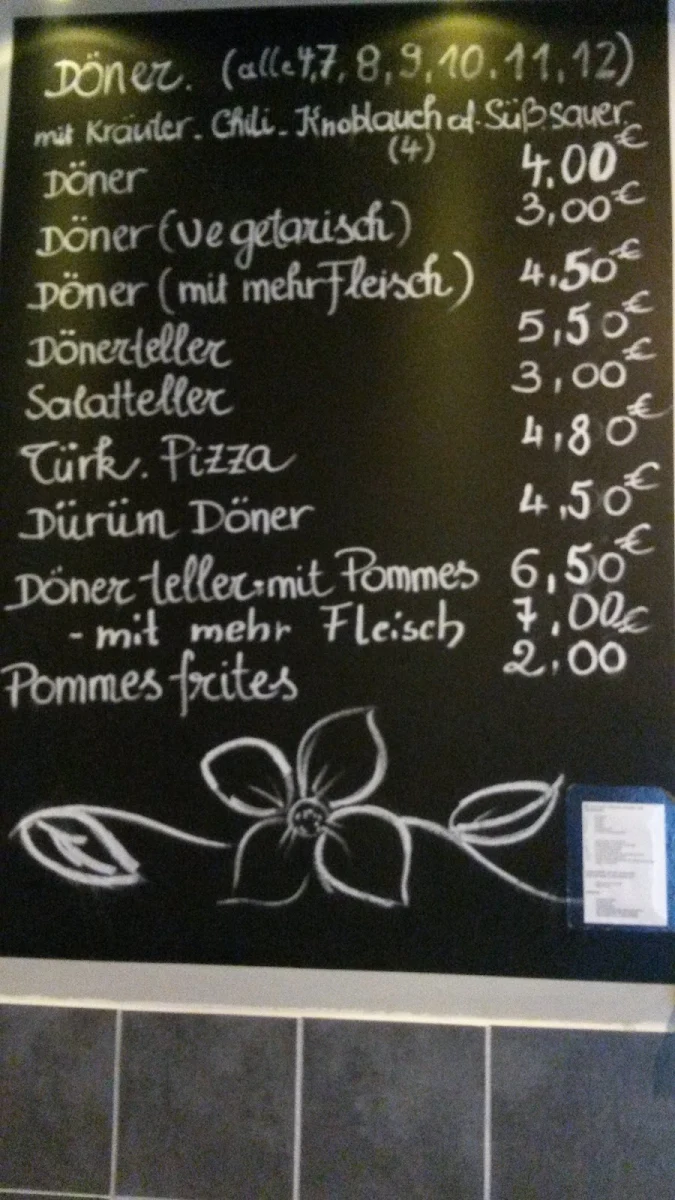 Döner. (alle 4,7, 8, 9, 10. 11, 12)
mit Kräuter - Chili - Knoblauch od. Süßsauer.
(4)
Döner 4,00€
Döner (vegetarisch) 3,00€
Döner (mit mehr Fleisch) 4,50€
Dönerteller 5,50€
Salatteller 3,00€
Türk. Pizza 4,80€
Dürüm Döner 4,50€
Döner teller mit Pommes 6,50€
- mit mehr Fleisch 7,00€
Pommes frites 2,00